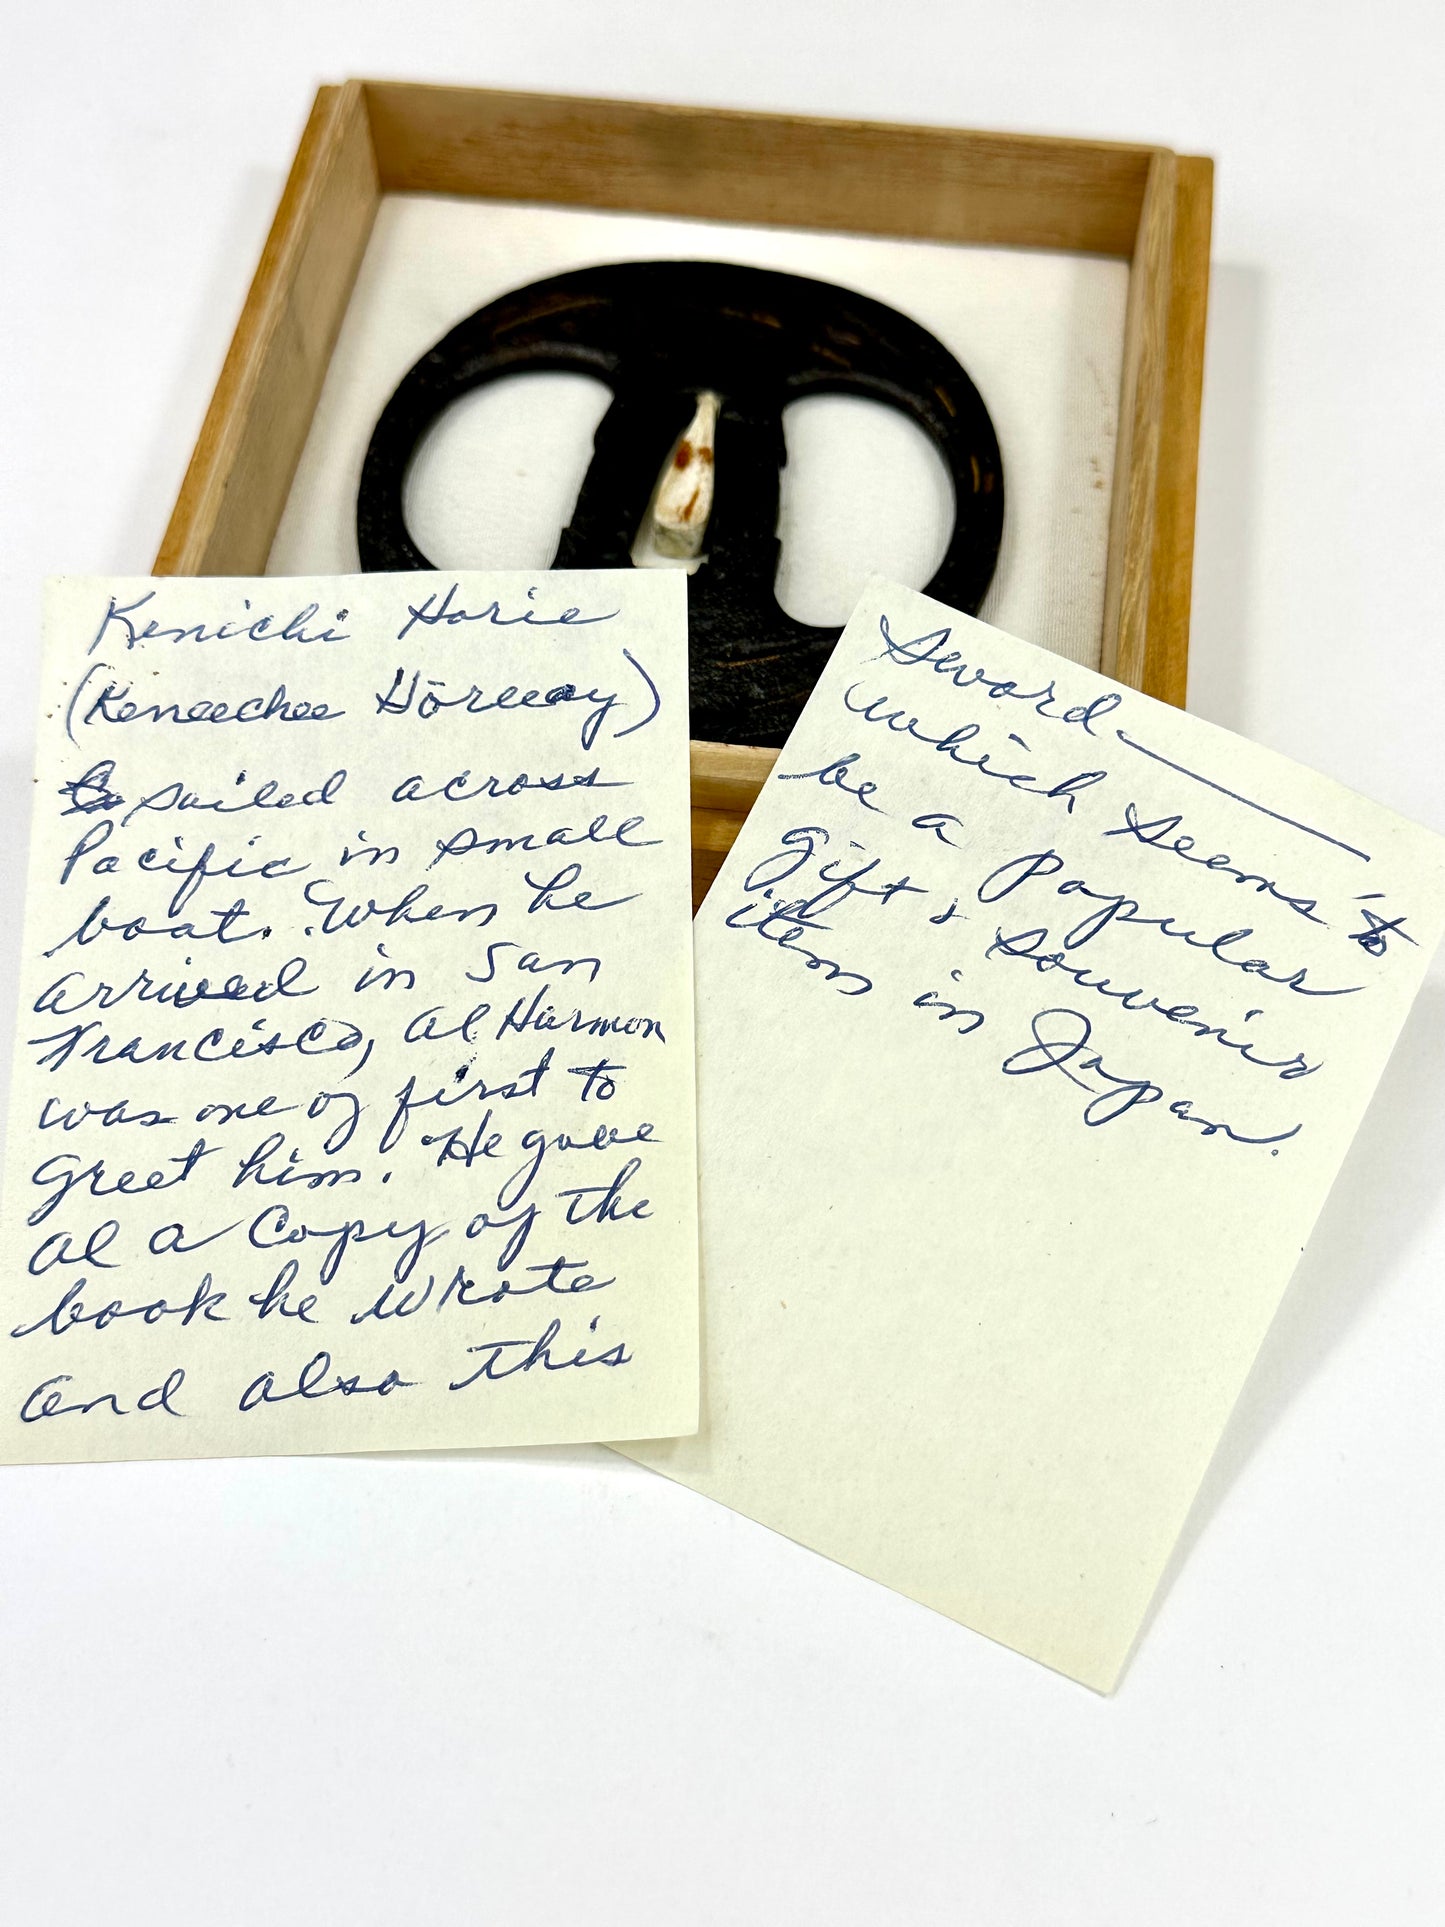 Kenichi Horie
(Keneechee Hōreeay)
sailed across
Pacific in small
boat. When he
arrived in San
Francisco, Al Harmon
was one of first to
greet him. He gave
Al a copy of the
book he wrote
and also this
Sword—
which seems to
be a popular
gift & souvenir
item in Japan.